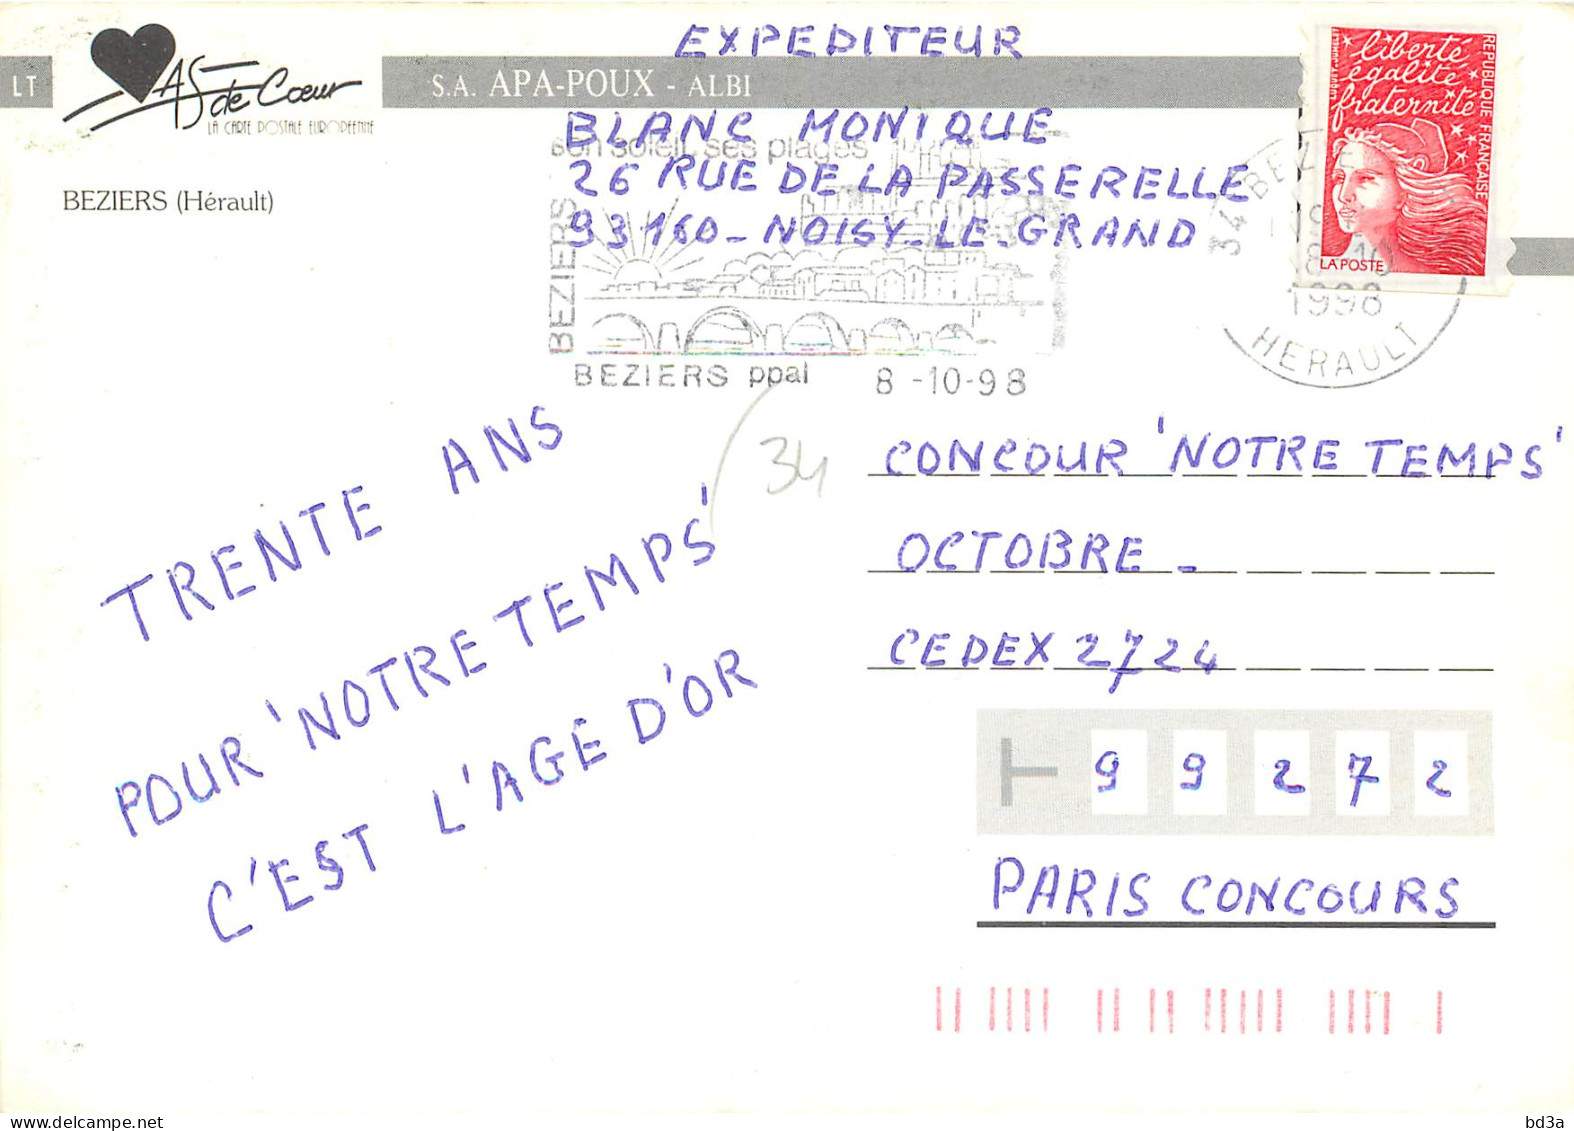 EXPEDITEUR
LT
AS de Coeur
LA CARTE POSTALE EUROPEENNE
S.A. APA-POUX - ALBI
BLANC MONIQUE
son soleil, ses plages
26 RUE DE LA PASSERELLE
93160 - NOISY - LE - GRAND
BEZIERS (Hérault)
BEZIERS
BEZIERS ppal 8 -10-98
liberté
égalité
fraternité
REPUBLIQUE FRANÇAISE
LA POSTE
34 BEZIE
8-10
1998
HERAULT
34
TRENTE ANS
POUR 'NOTRE TEMPS'
C'EST L'AGE D'OR
CONCOUR 'NOTRE TEMPS'
OCTOBRE -
CEDEX 2724
99272
PARIS CONCOURS
bd3a